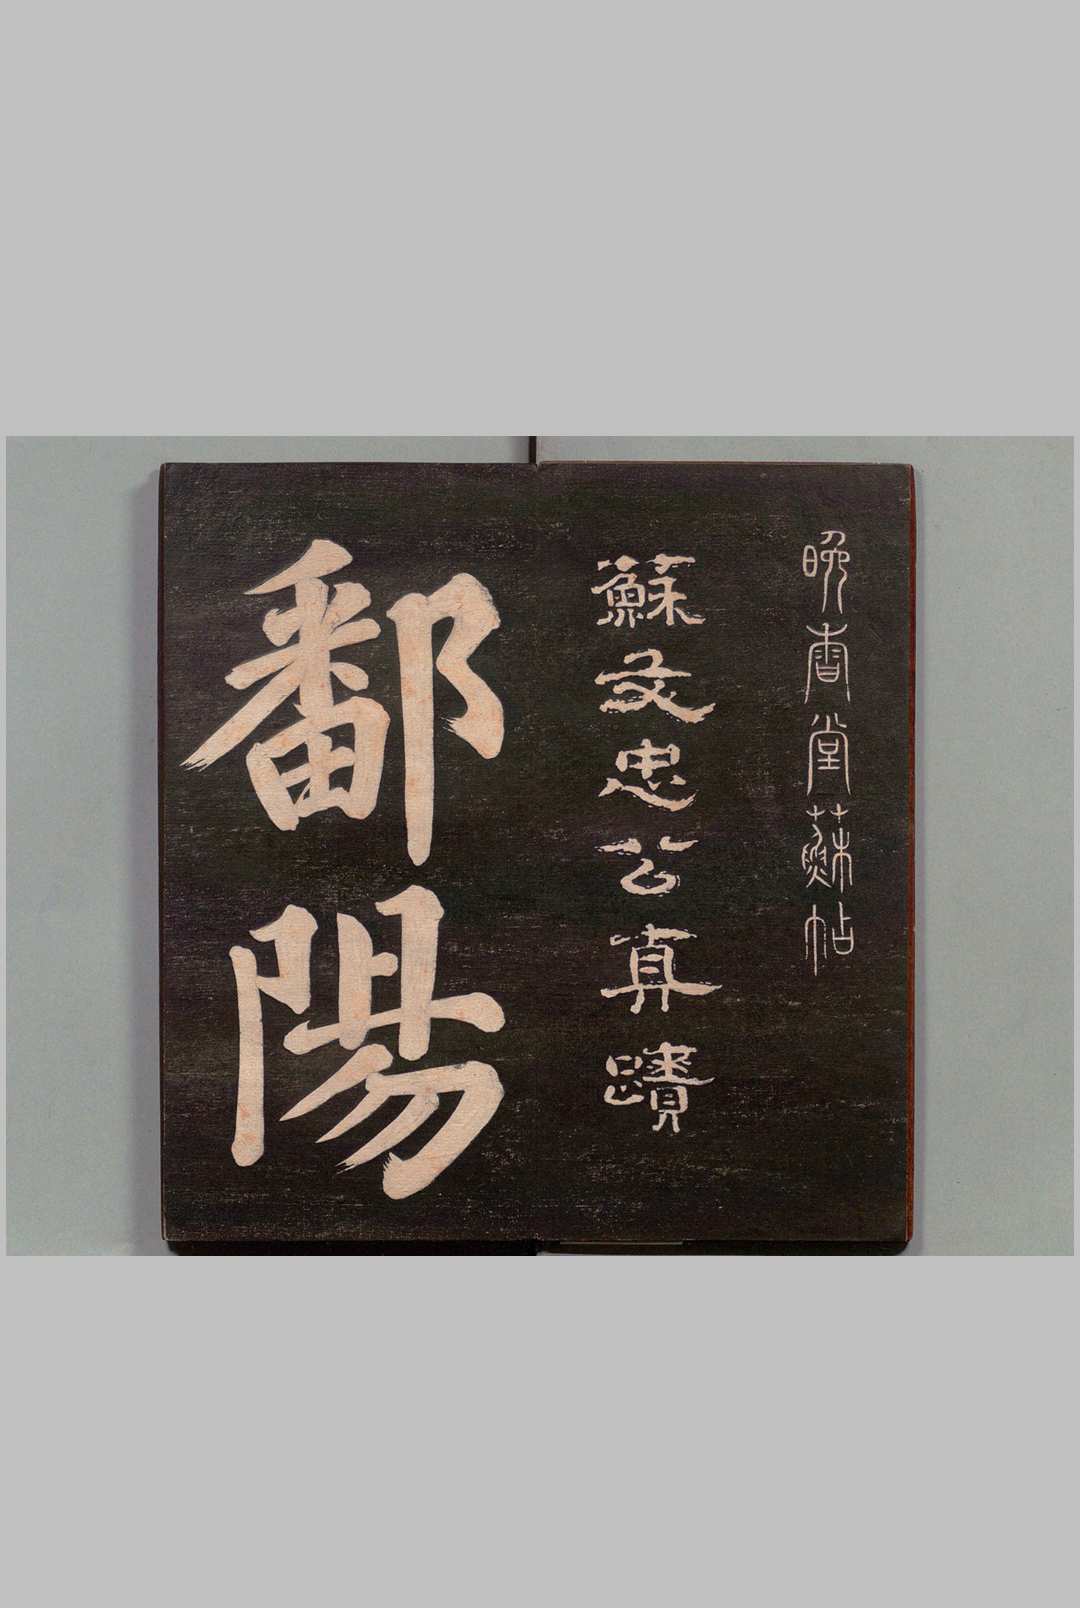 晚香堂蘇帖
蘇文忠公真蹟
鄱陽